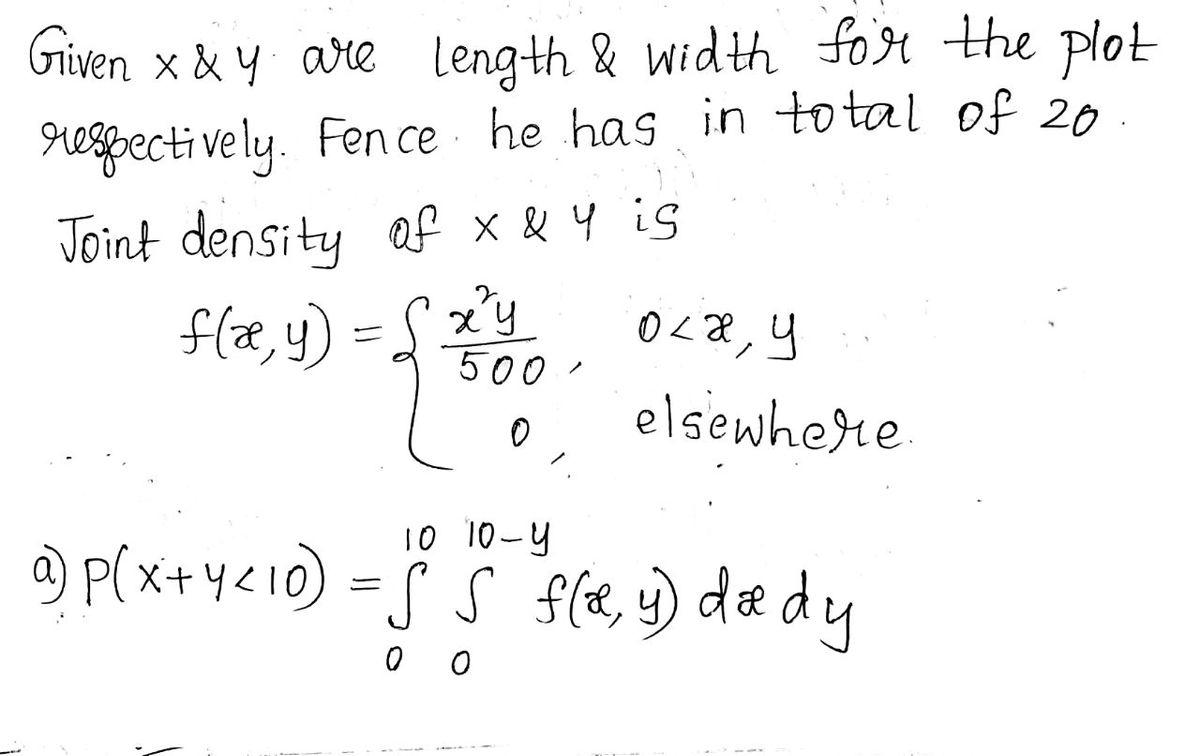 Given x & y are length & width for the plot
respectively. Fence he has in total of 20.
Joint density of x & y is
f(x,y) = { x²y/500 , 0<x,y
0, elsewhere.
a) P(x+y<10) = ∫₀¹⁰ ∫₀¹⁰⁻ʸ f(x,y) dx dy